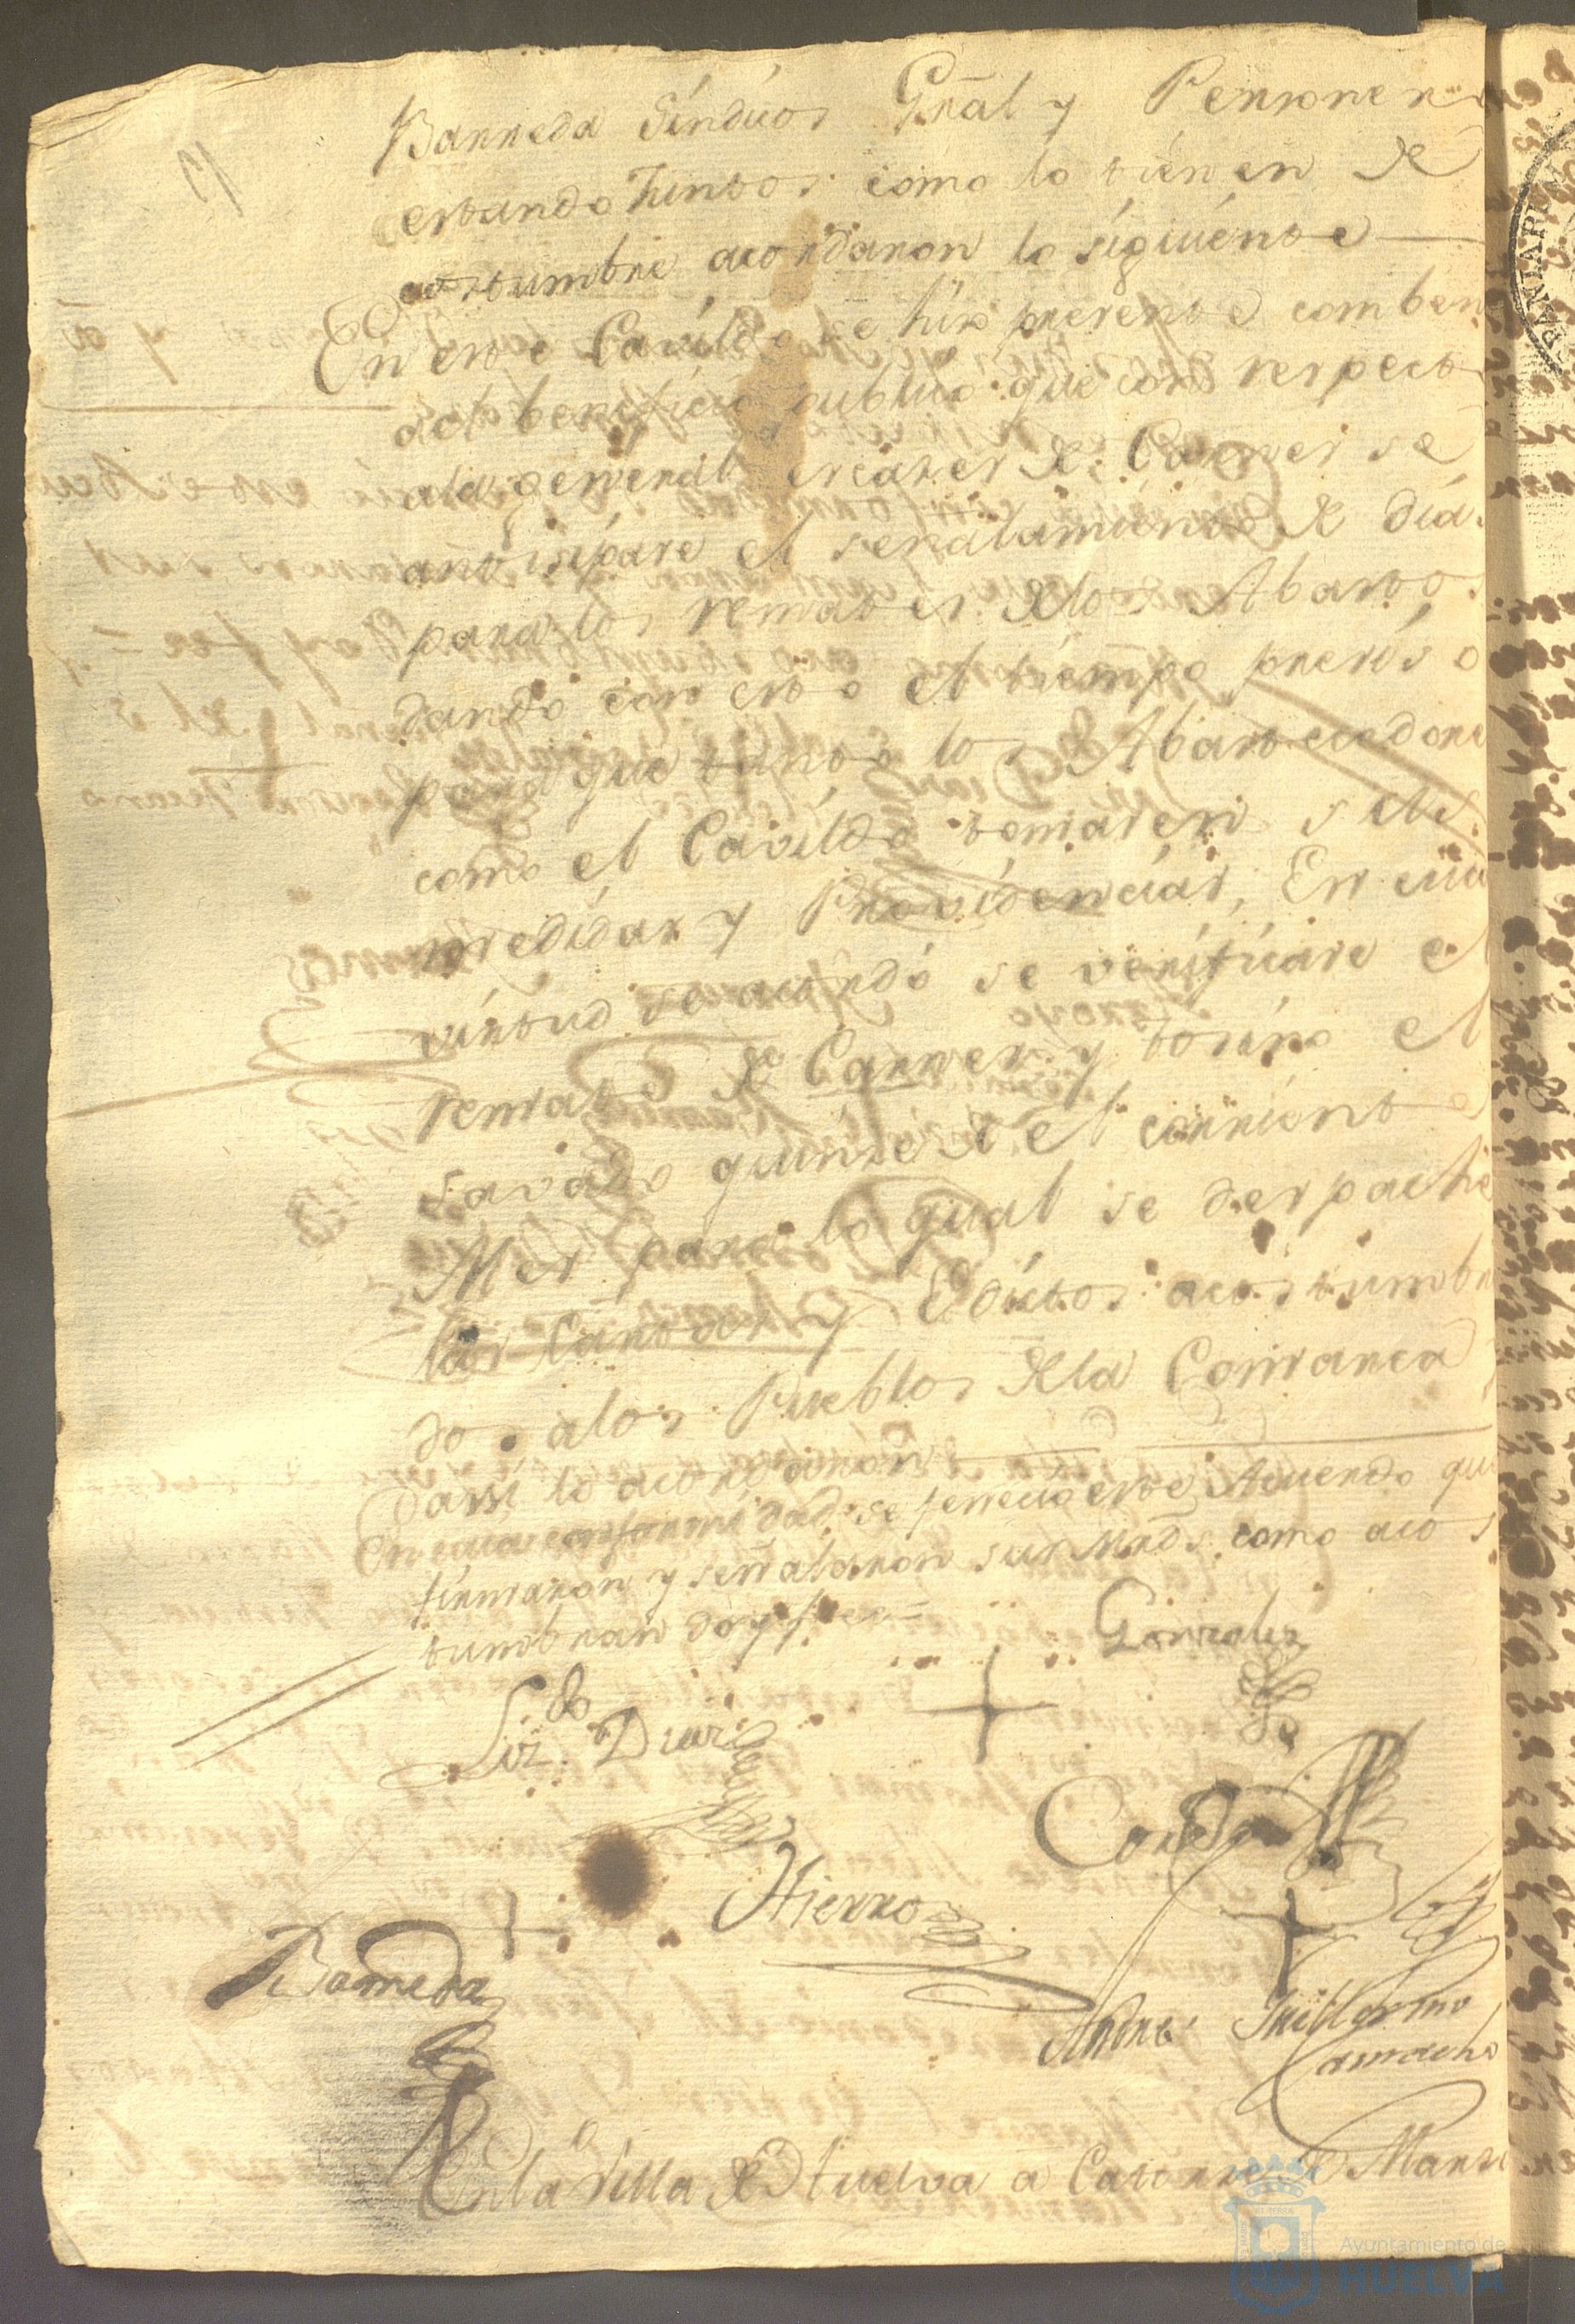 Barreda Síndicos Grãl y Personero
estando Juntos como lo tienen de
costumbre acordaron lo siguiente
En este Cavildo se hizo presente comben
al beneficio publico que con respecto
ala general escases de Carnes se
antisipare el señalamiento de dia
para los remates delos Abastos
dando con esto el tiempo preciso
para que tanto los Abastecedores
como el Cavildo tomasen sus
medidas y Providencias, En cuia
virtud se acordó se verificase el
remate de Carnes y tosino el
Savado quinse del corriente
Mes para lo qual se despache
las Cartas y Edictos acostumbra
dos alos Pueblos dela Comarca
Y assi lo acordaron
En cuia conformidad se fenecio este Acuerdo que
firmaron y señalaron sus Mrds. como acos
tumbran doy fee =
Gonzales
Liz.do Diaz
Hierro
Barreda
Andres Guillermo
Camacho
En la Villa de Huelva a Catorse de Marzo
Ayuntamiento de
HUELVA